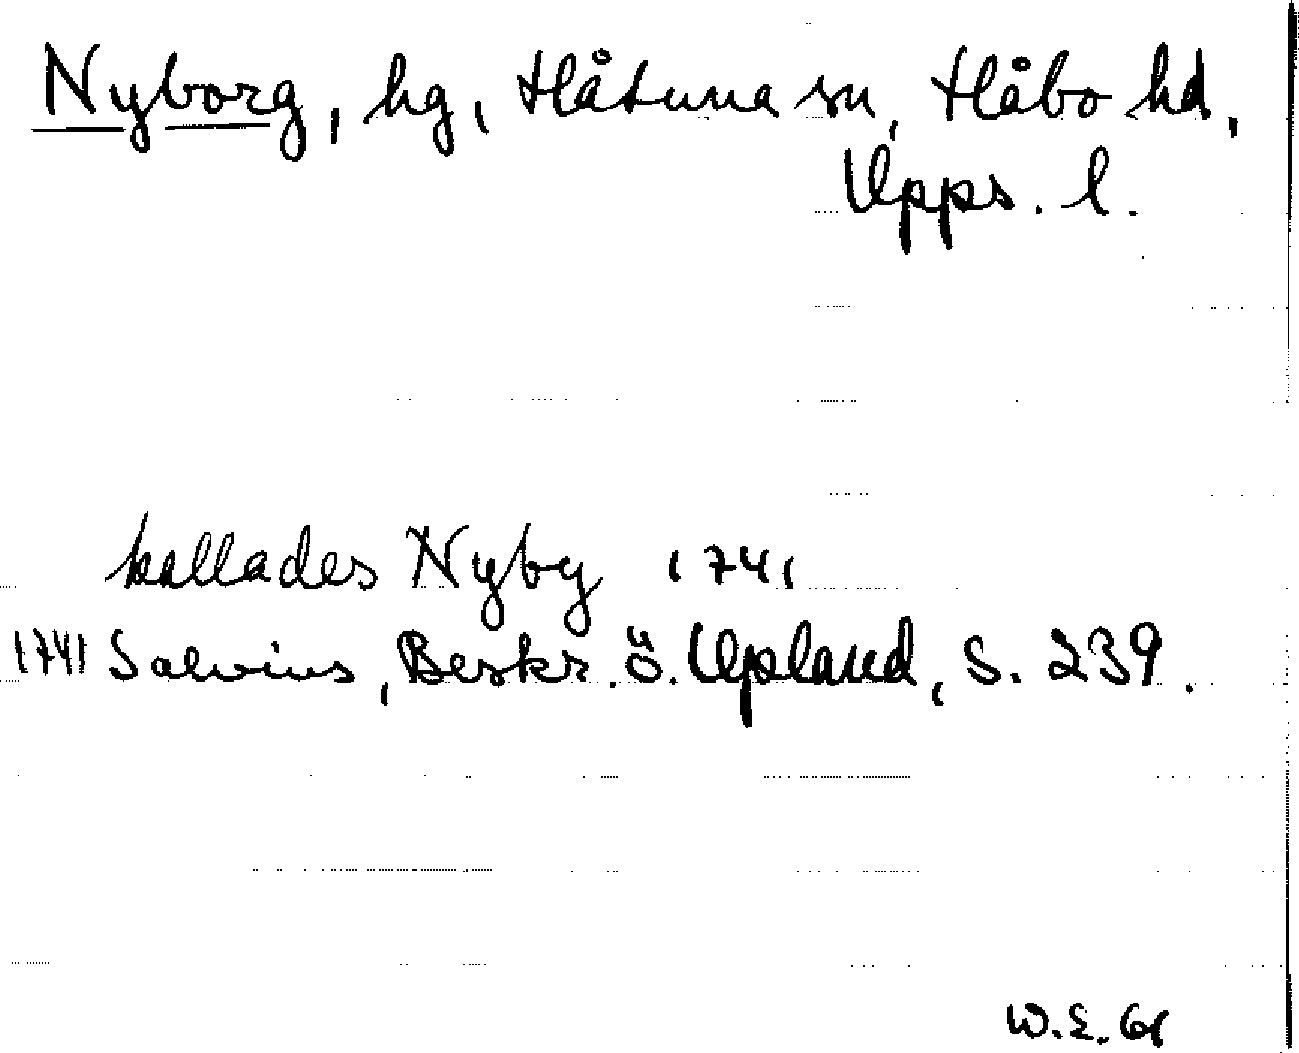 Nyborg, hg, Håtuna sn, Håbo hd,
Upps. l.
kallades Nyby 1741
1741 Salvius, Beskr. ö. Upland, S. 239.
W.E. 61